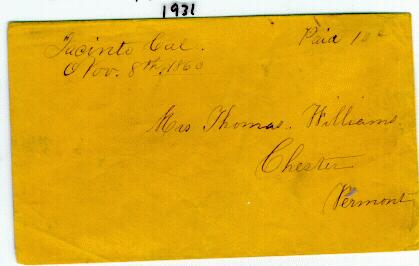 1931
Jacinto Cal.
Nov. 8th, 1860
Paid 10c
Mrs Thomas. Williams.
Chester
Vermont